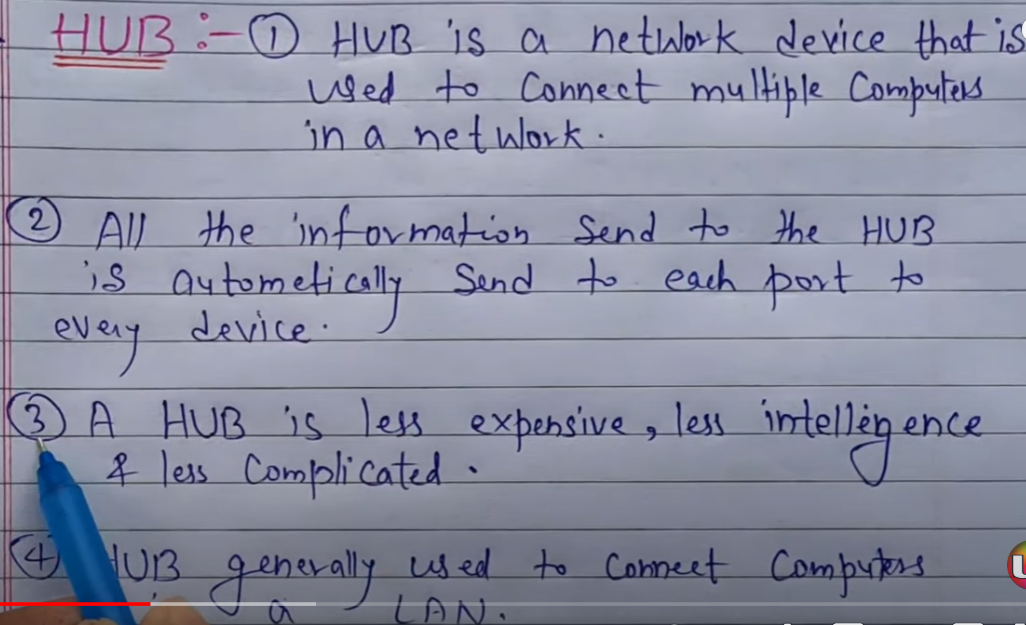 HUB :- ① HUB is a network device that is
used to Connect multiple Computers
in a network.
② All the information Send to the HUB
is autometically Send to each port to
every device.
③ A HUB is less expensive, less intellegence
& less Complicated.
④ HUB generally used to Connect Computers
a LAN.